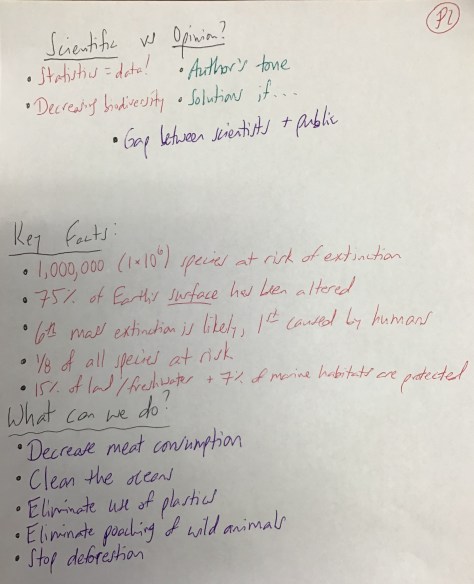 P2
Scientific vs Opinion?
• Statistics = data! • Author's tone
• Decreasing biodiversity • Solutions if...
• Gap between scientists + public
Key Facts:
• 1,000,000 (1×10⁶) species at risk of extinction
• 75% of Earth's surface has been altered
• 6th mass extinction is likely, 1st caused by humans
• 1/8 of all species at risk
• 15% of land/freshwater + 7% of marine habitats are protected
What can we do?
• Decrease meat consumption
• Clean the oceans
• Eliminate use of plastics
• Eliminate poaching of wild animals
• Stop deforestion